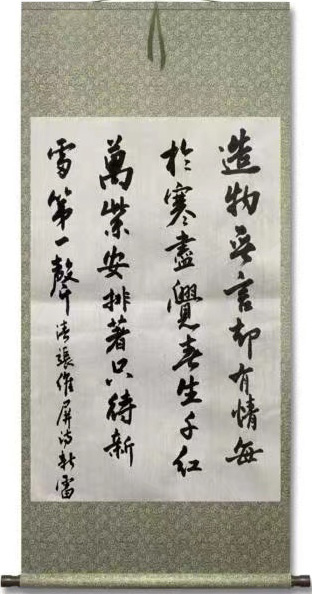 造物无言却有情每
於寒盡覺春生千紅
萬紫安排著只待新
雷第一聲清張維屏詩新雷